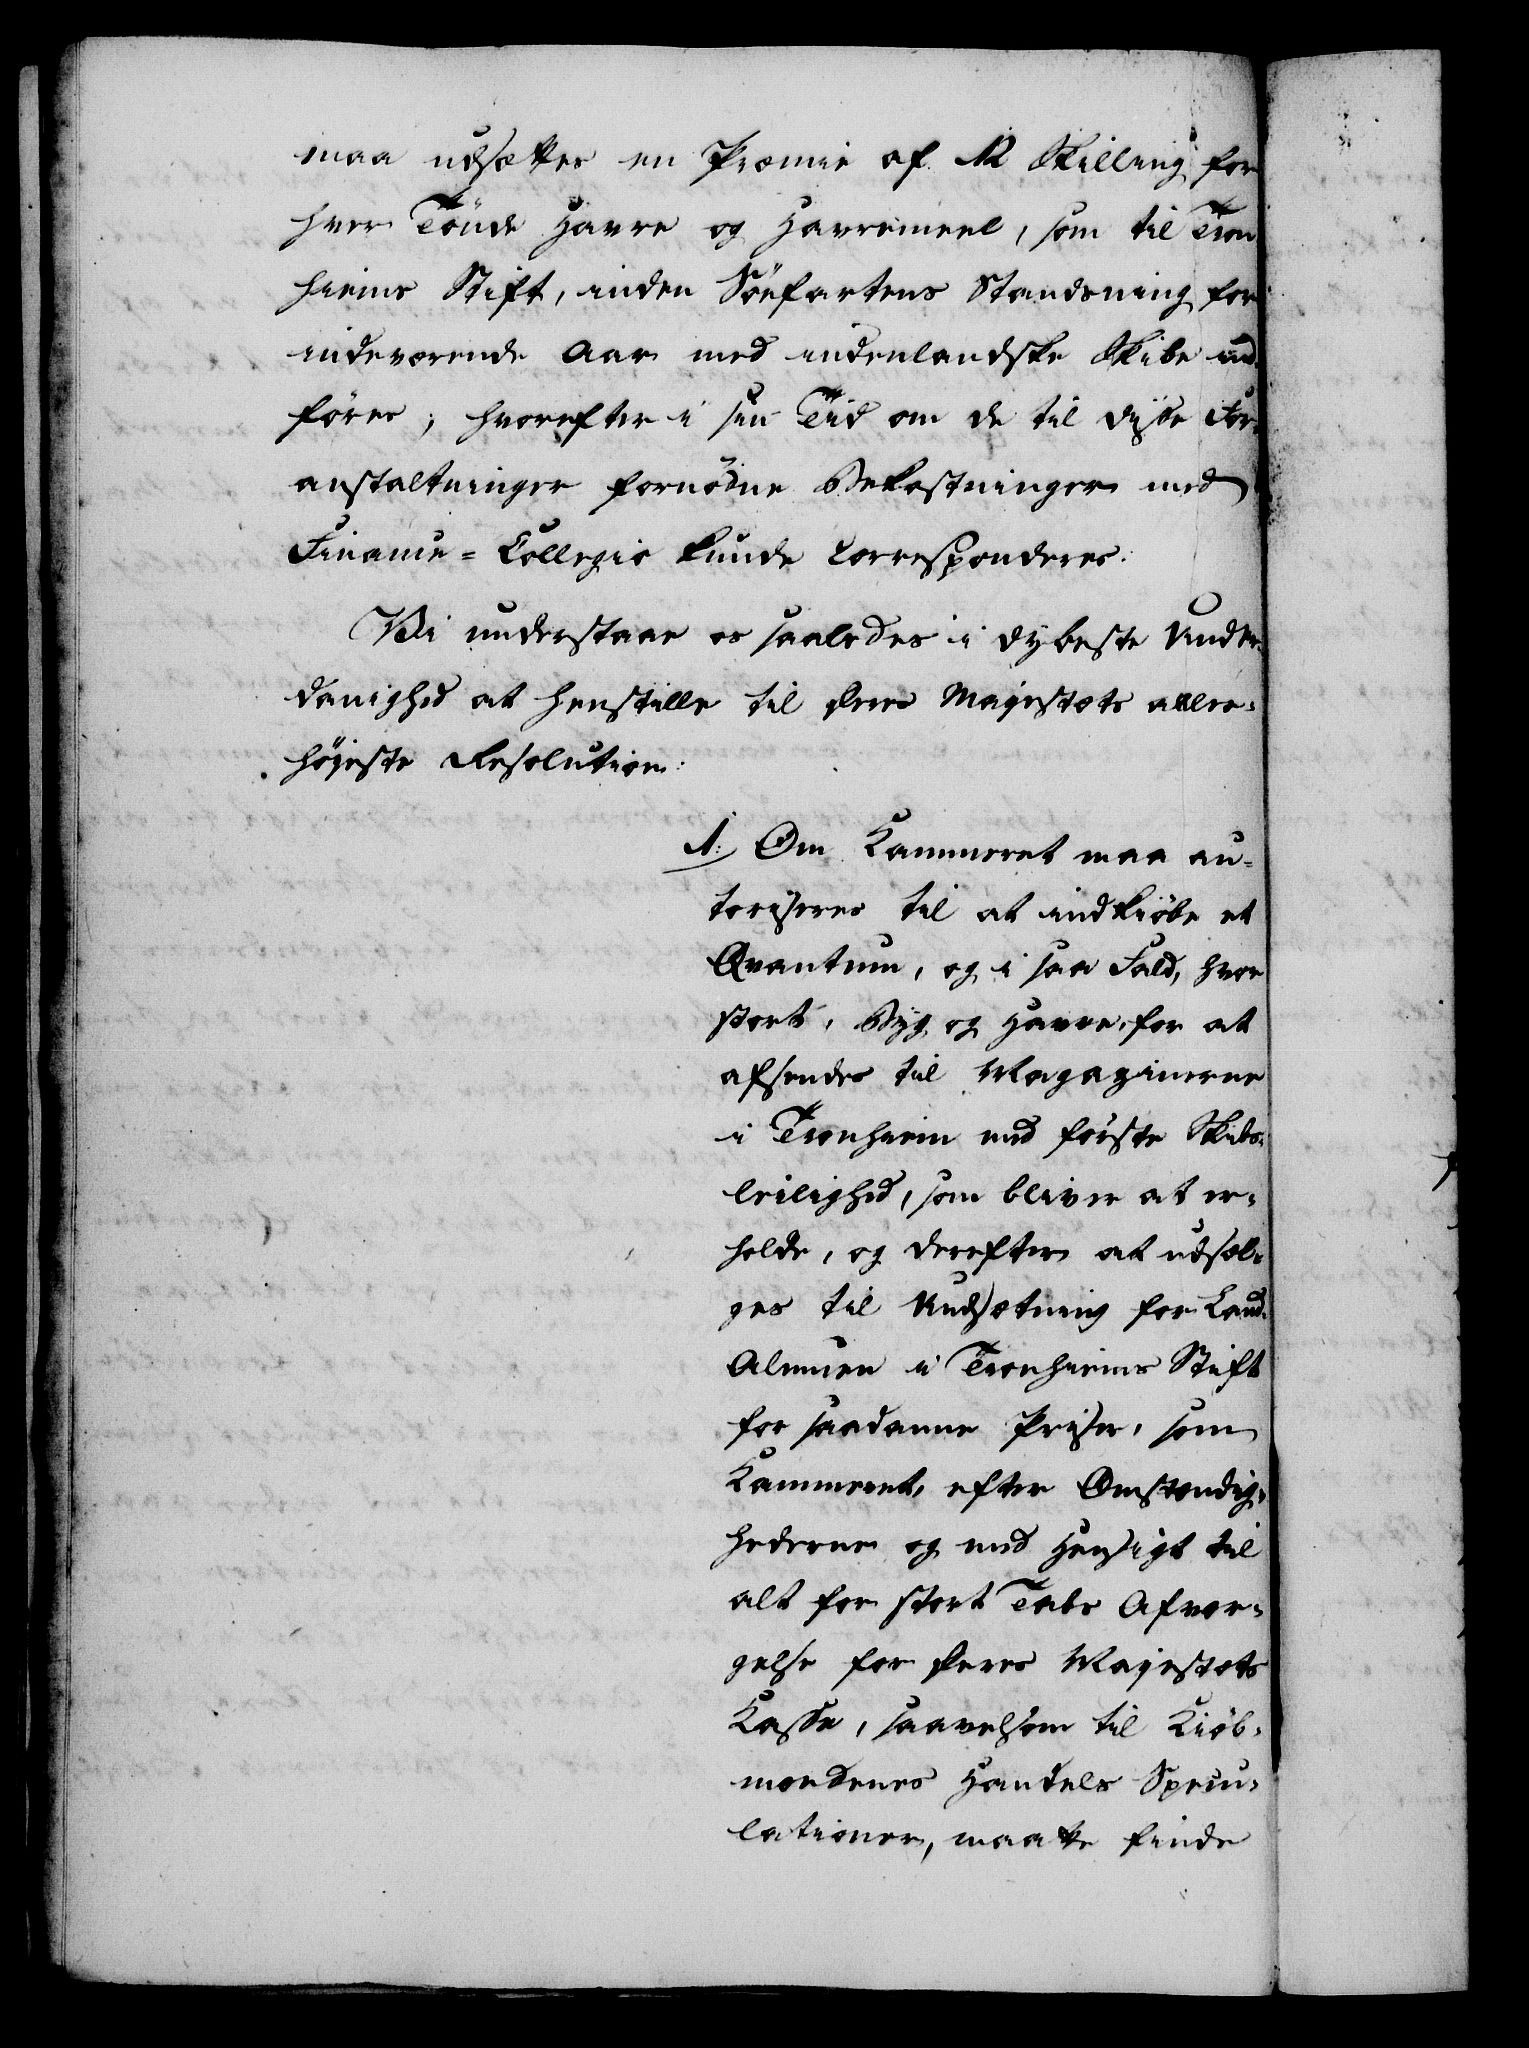 maa udsættes en Præmie af 12 Skilling for
hver Tönde Havre og Havremeel, som til Tron
hiems Stift, inden Söefartens Standsning for
indeværende Aar med indenlandske Skibe ind-
föres; hvorefter i sin Tiid om de til disse For-
anstaltninger fornödne Bekostninger med
Finance-Collegio kunde corresponderes.
Vi understaae os saaledes i dybeste Under-
danighed at henstille til Deres Majestæts aller-
höjeste Resolution:
1. Om Kammeret maa au-
toriseres til at indkiöbe et
Qvantum, og i saa Fald, hvor
stort, Byg og Havre, for at
afsendes til Magazinerne
i Tronhiem med förste Skibs-
leilighed, som bliver at er-
holde, og derefter at udsæl-
ges til Undsætning for Land-
Almuen i Tronhiems Stift
for saadanne Priser, som
Kammeret, efter Omstændig-
hederne og med Hensigt til
alt for stort Tabs Afvær-
gelse for Deres Majestæts
Kasse, saavelsom til Kiöb-
mændenes Handels Specu-
lationer, maatte finde